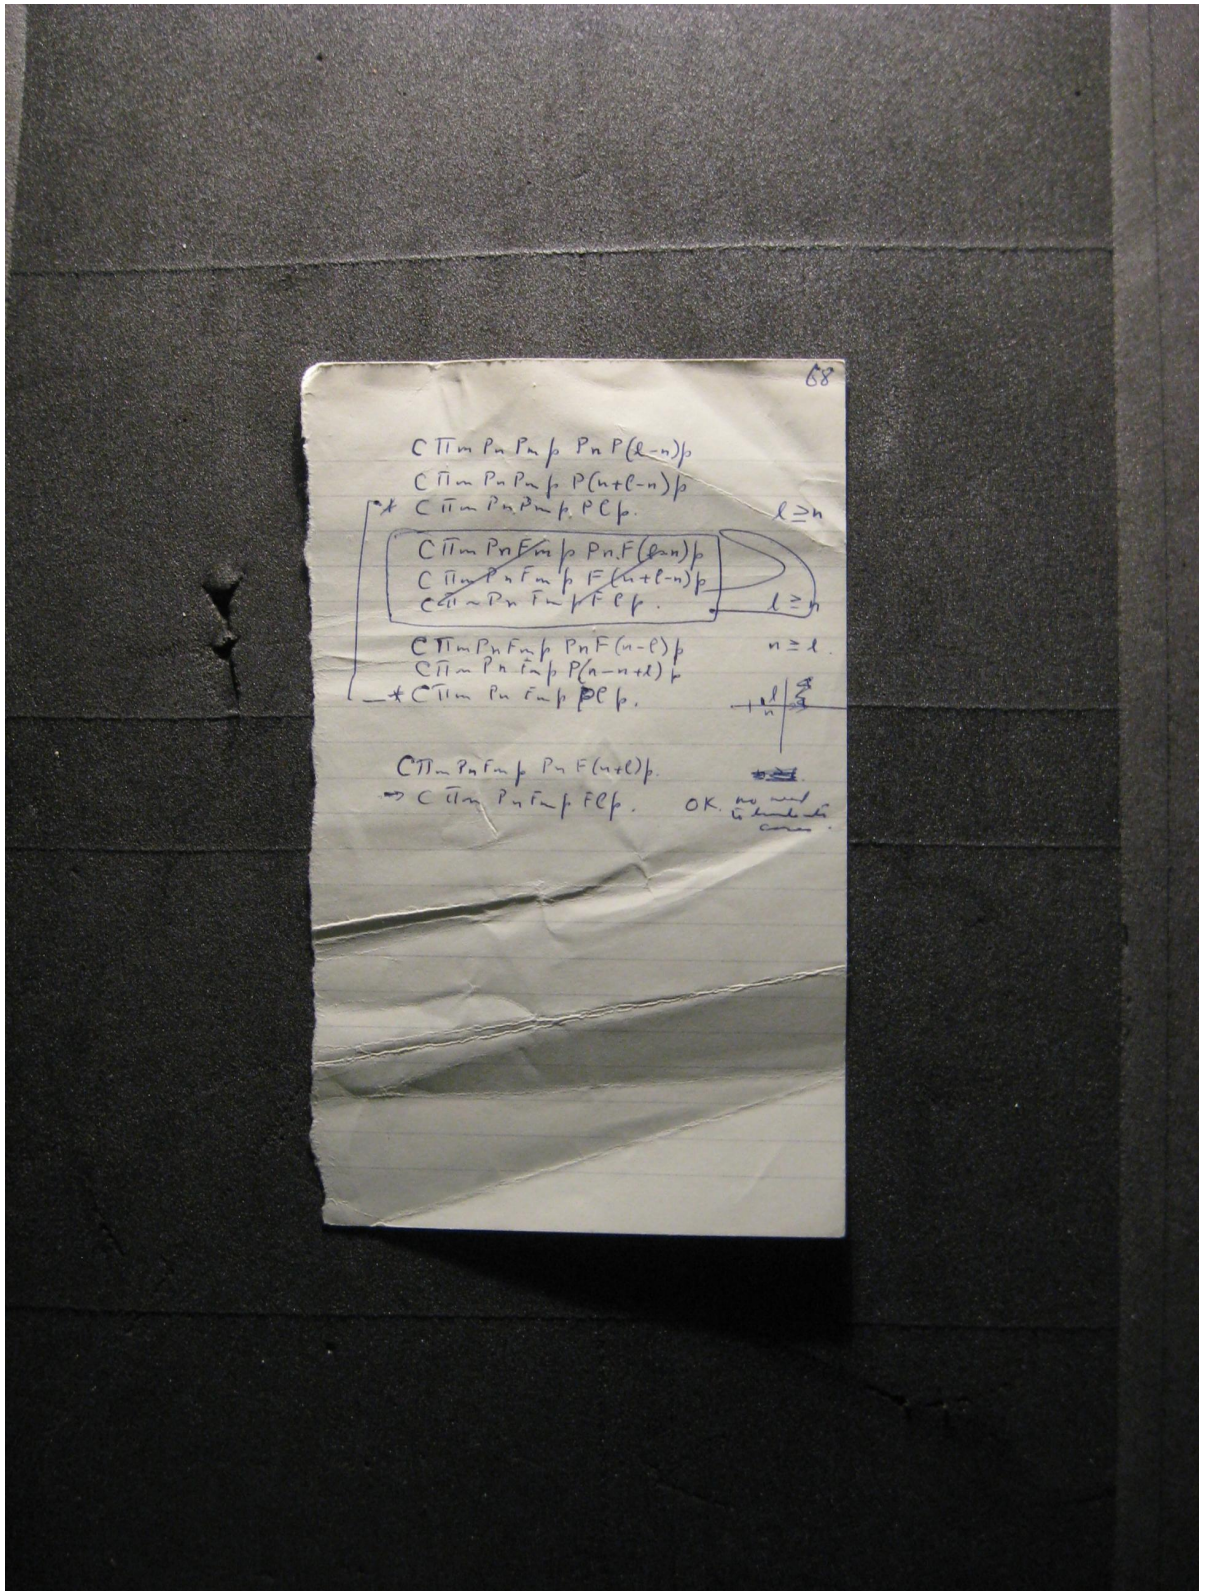 68
C Πm Pn Pm p Pn P(l-n)p
C Πm Pn Pm p P(n+l-n)p
* C Πm Pn Pm p. P l p. l ≥ n
C Πm Pn Fm p Pn. F(l-n)p
C Πm Pn Fm p F(n+l-n)p
C Π m Pn Fm p F l p. l ≥ n
C Πm Pn Fm p Pn F(n-l)p n ≥ l.
C Πm Pn Fm p P(n-n+l)p
* C Πm Pn Fm p P l p.
l
n
C Πm Pn Fm p Pn F(n+l)p.
⇒ C Πm Pn Fm p F l p. OK. no need
to
cases.